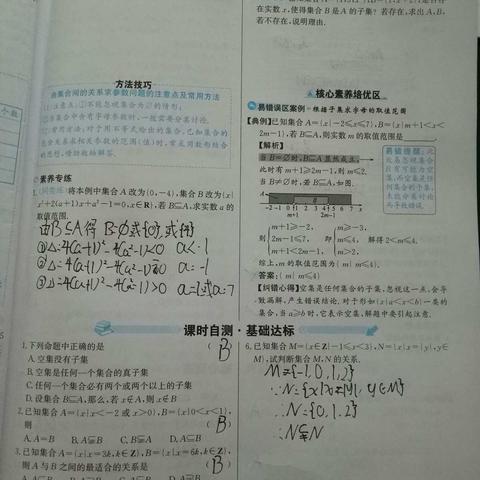 在实数 x，使得集合 B 是 A 的子集？若存在，求出 A，B，
若不存在，说明理由.
方法技巧
由集合间的关系求参数问题的注意点及常用方法
(1)注意点：①不能忽视集合为∅的情形；
②当集合中含有字母参数时，一般需要分类讨论.
(2)常用方法：对于用不等式给出的集合，已知集合的
包含关系求相关参数的范围(值)时，常采用数形结合
的思想，借助数轴解答.
素养专练
将本例中集合 A 改为{0,-4}，集合 B 改为{x|
x²+2(a+1)x+a²-1=0,x∈R}，若 B⊆A，求实数 a 的
取值范围.
由B⊆A得 B=∅或{0}或
①Δ=4(a+1)²-4(a²-1)<0 a<-1
②Δ=4(a+1)²-4(a²-1)=0 a=-1
③Δ=4(a+1)²-4(a²-1)>0 a=1或a=7
核心素养培优区
易错误区案例 根据子集求字母的取值范围
【典例】已知集合 A={x|-2≤x≤7}，B={x|m+1<x<
2m-1}，若 B⊆A，则实数 m 的取值范围是
【解析】
当 B=∅时，B⊆A 显然成立，
此时有 m+1≥2m-1，则 m≤2.
当 B≠∅时，若 B⊆A，如图.
易错警示：
-2 -1 0 1 2 3 4 5 6 7
m+1 2m-1
m+1≥-2, m≥-3,
则 2m-1≤7, 即 m≤4, 解得 2<m≤4.
m+1<2m-1, m>2,
综上，m 的取值范围为{m|m≤4}.
答案：{m|m≤4}
【纠错心得】空集是任何集合的子集，忽视这一点，会导
致漏解，产生错误结论，对于形如{x|a<x<b}一类的
集合，当 a≥b 时，它表示空集，解题中要引起注意.
课时自测·基础达标
1.下列命题中正确的是 (B)
A.空集没有子集
B.空集是任何一个集合的真子集
C.任何一个集合必有两个或两个以上的子集
D.设集合 B⊆A，那么，若 x∉A，则 x∉B
2.已知集合 A={x|x<-2 或 x>0}，B={x|0<x<1}，
则 (B)
A.A=B B.A⫌B C.B⊊A D.A⊆B
3.已知集合 A={x|x=3k,k∈Z}，B={x|x=6k,k∈Z}，
则 A 与 B 之间的最适合的关系是 (B)
6.已知集合 M={x∈Z|-1≤x<3}，N={x|x=|y|,y∈
M}，试判断集合 M，N 的关系.
M={-1,0,1,2}
∵N={x|x=|y|,y∈M}
∴N={0,1,2}
∴N⫋N